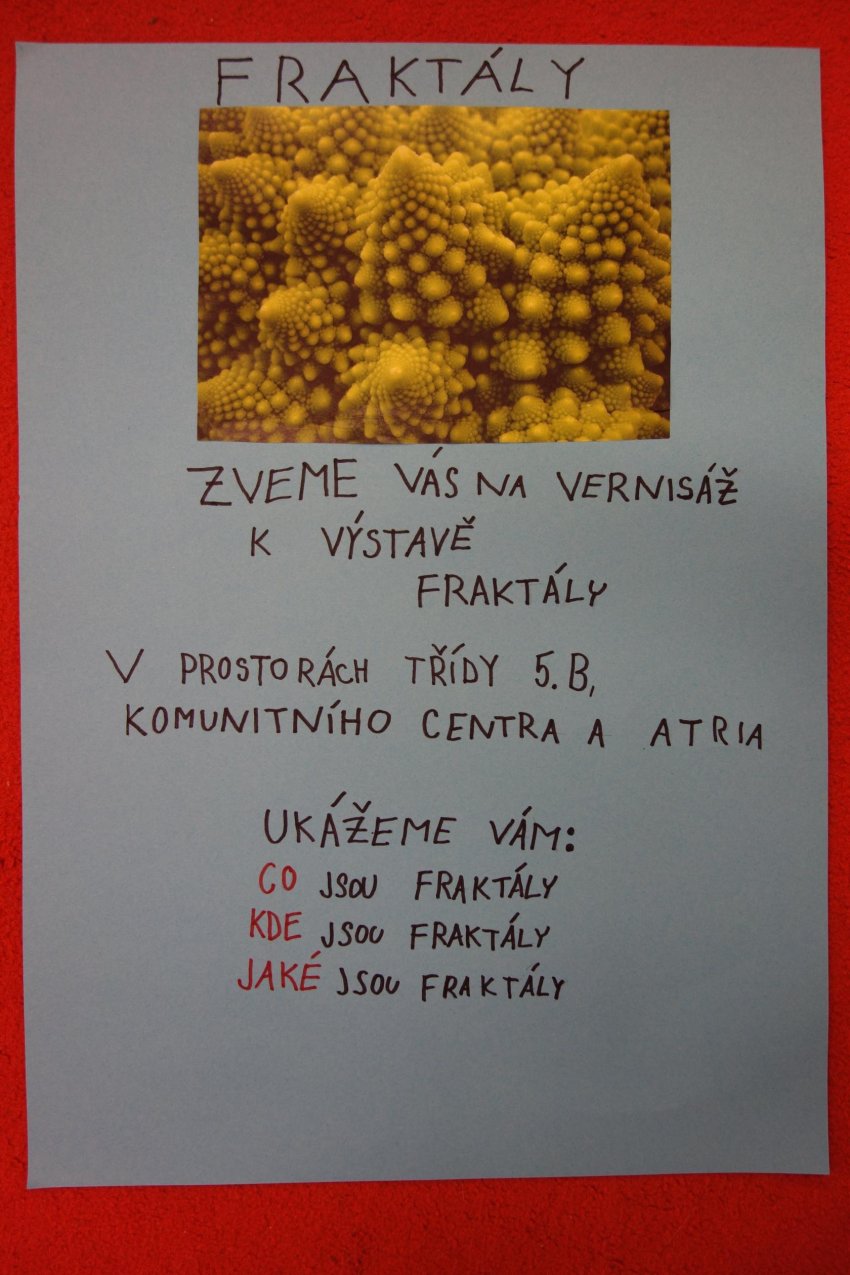 FRAKTÁLY
ZVEME VÁS NA VERNISÁŽ
K VÝSTAVĚ
FRAKTÁLY
V PROSTORÁCH TŘÍDY 5.B,
KOMUNITNÍHO CENTRA A ATRIA
UKÁŽEME VÁM:
CO JSOU FRAKTÁLY
KDE JSOU FRAKTÁLY
JAKÉ JSOU FRAKTÁLY